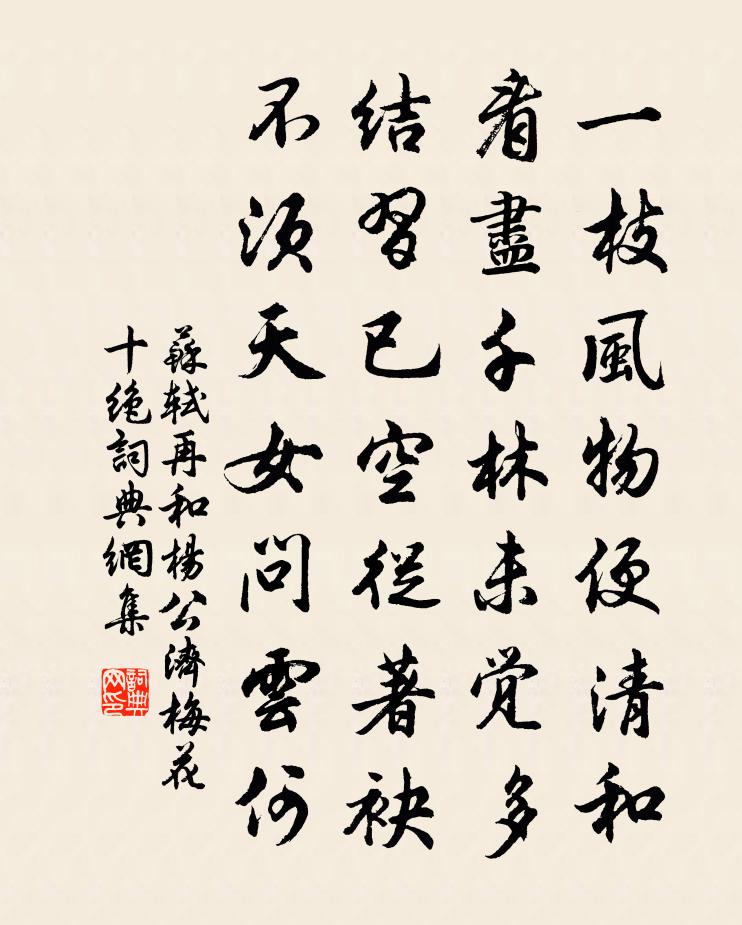 一枝風物便清和
看盡千林未覚多
結習已空從著袂
不須天女問雲何
蘇軾再和楊公濟梅花
十绝詞典網集
詞典网印